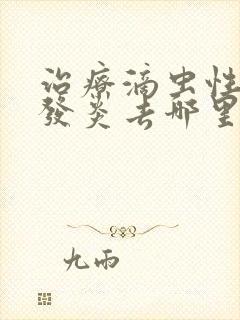 治療滴虫性
發炎去哪里
九雨